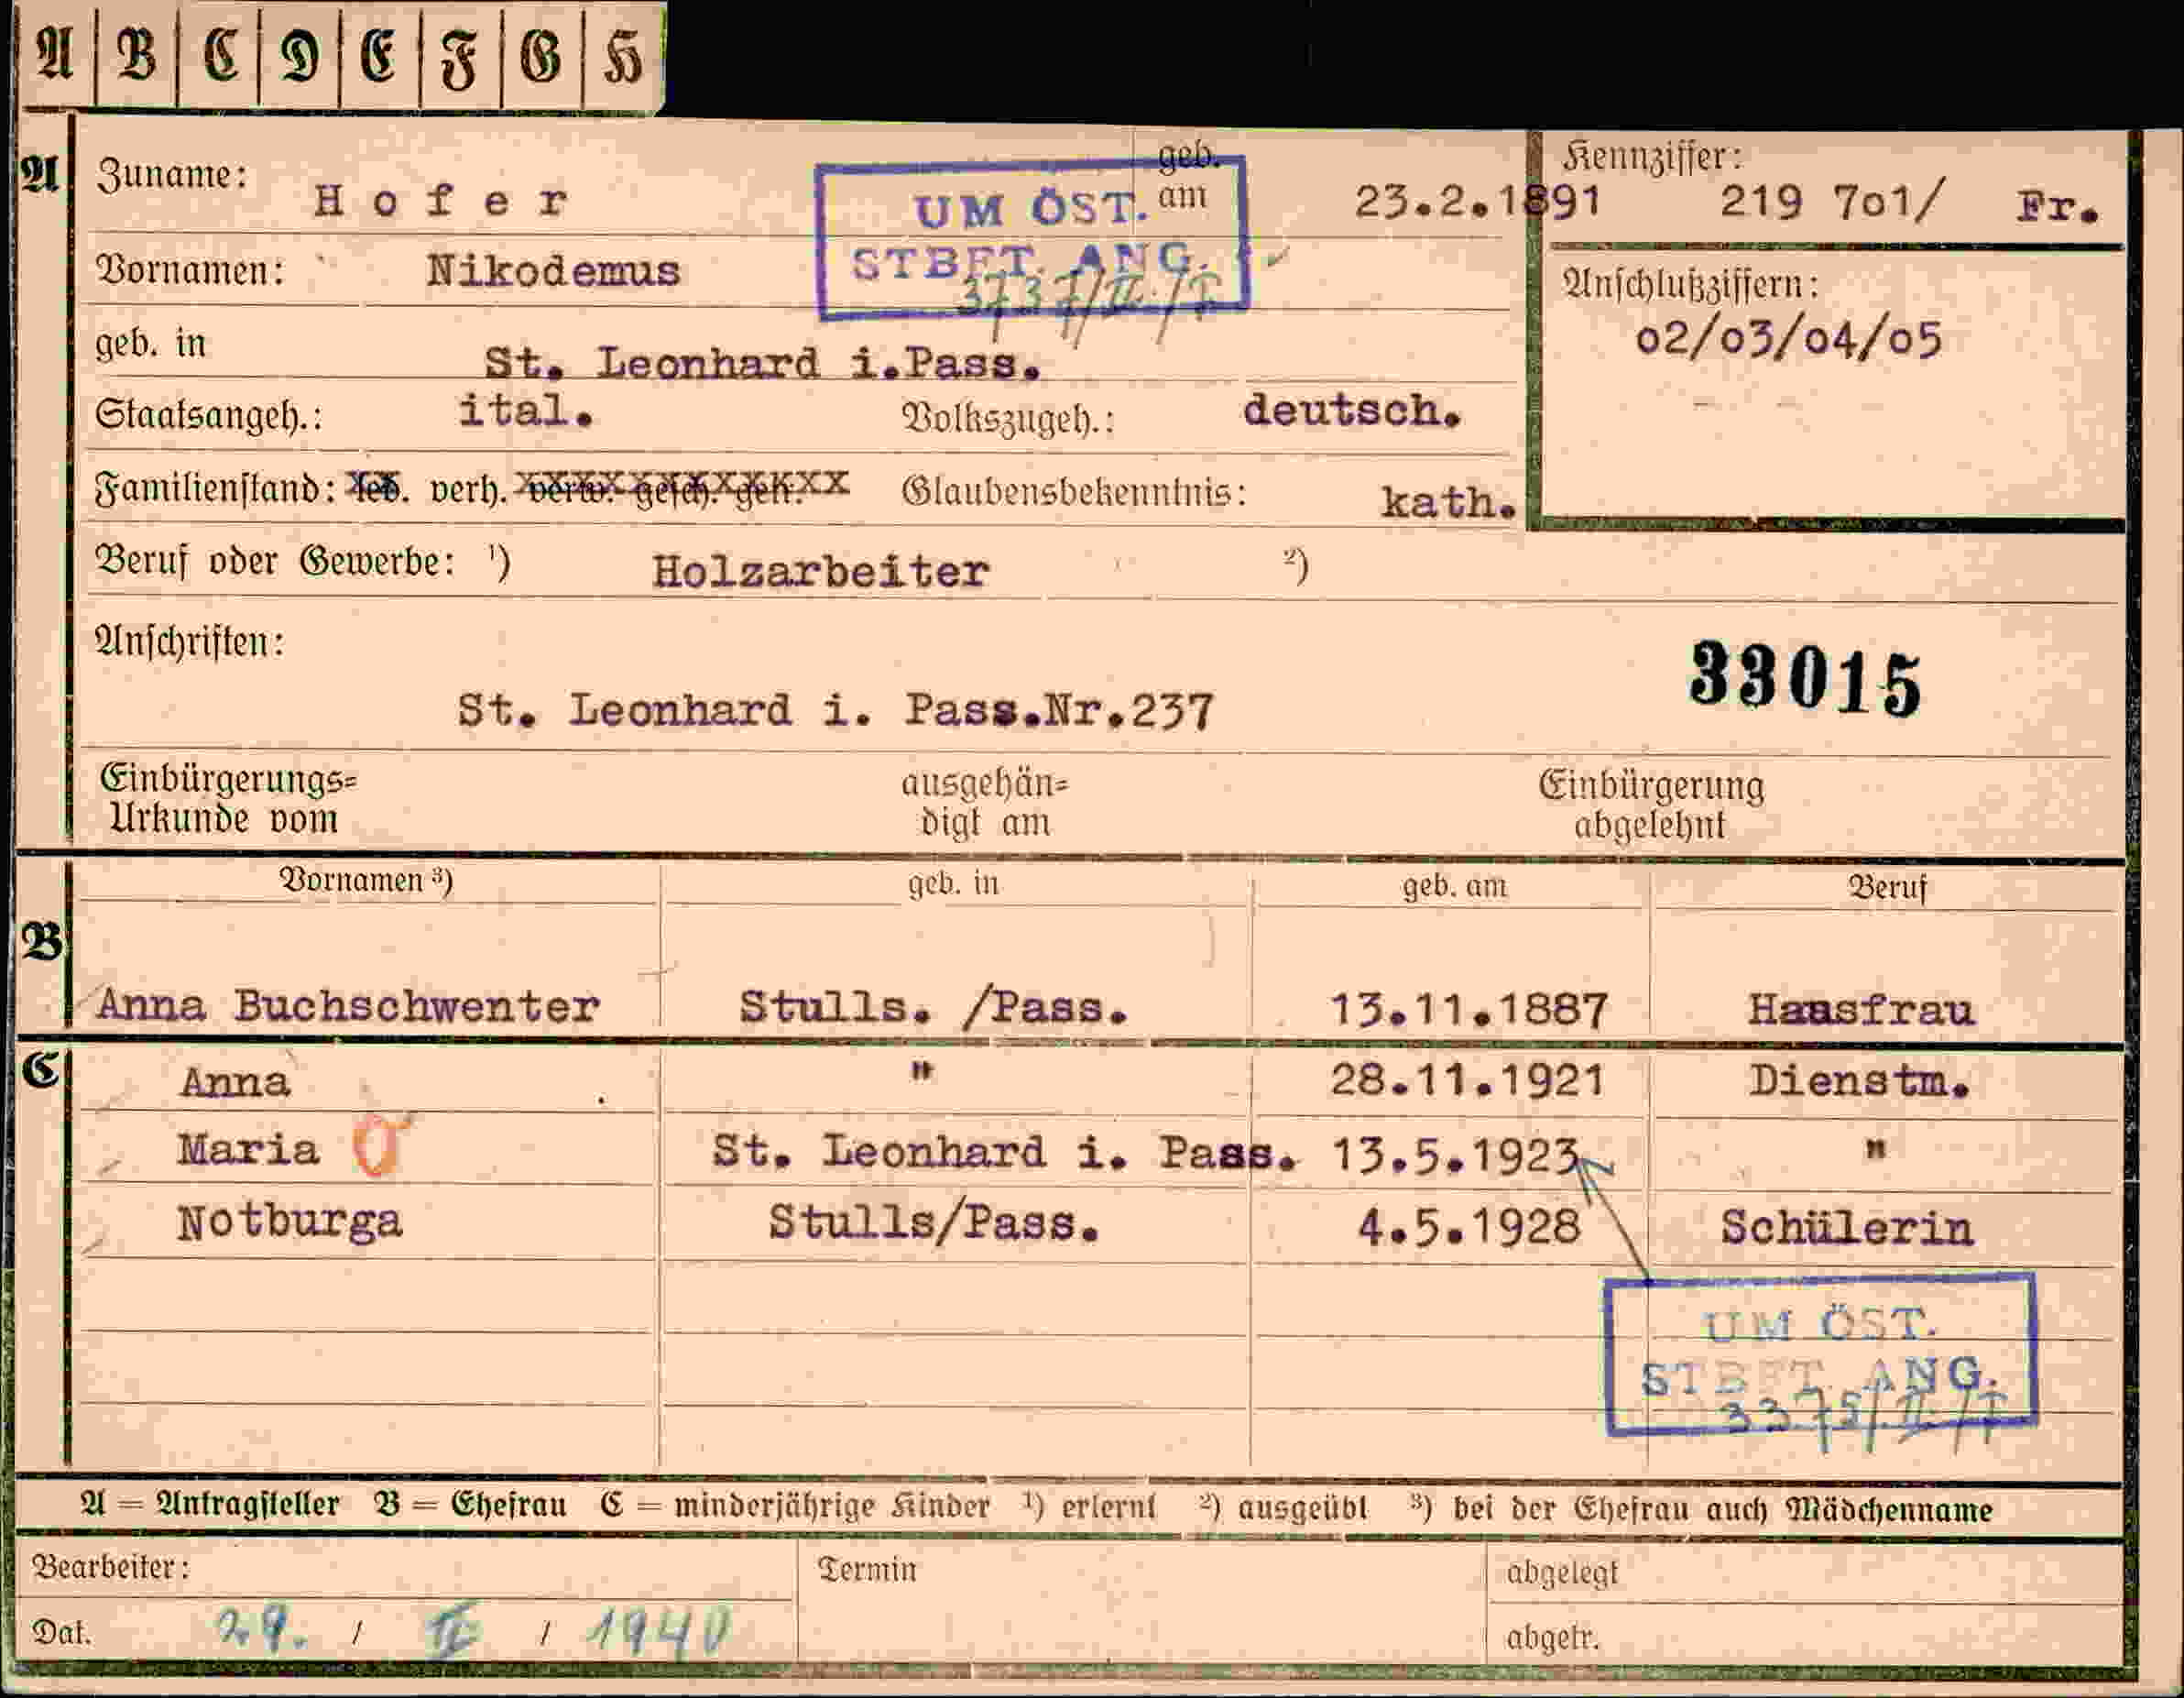 A B C D E F G H
A Zuname: Hofer geb. am 23.2.1891 Kennziffer: 219 7o1/ Fr.
UM ÖST.
STBFT. ANG.
3737/II/T
Vornamen: Nikodemus
geb. in St. Leonhard i.Pass.
Anschlußziffern:
o2/o3/o4/o5
Staatsangeh.: ital. Volkszugeh.: deutsch.
Familienstand: led. verh. verw. gesch. getr. Glaubensbekenntnis: kath.
Beruf oder Gewerbe: ¹) Holzarbeiter ²)
Anschriften:
33015
St. Leonhard i. Pass.Nr.237
Einbürgerungs=
Urkunde vom
ausgehän=
digt am
Einbürgerung
abgelehnt
Vornamen ³) geb. in geb. am Beruf
B
Anna Buchschwenter Stulls. /Pass. 13.11.1887 Haasfrau
C Anna " 28.11.1921 Dienstm.
Maria St. Leonhard i. Pass. 13.5.1923 "
Notburga Stulls/Pass. 4.5.1928 Schülerin
UM ÖST.
STBFT. ANG.
3375/II/T
A = Antragsteller B = Ehefrau C = minderjährige Kinder ¹) erlernt ²) ausgeübt ³) bei der Ehefrau auch Mädchenname
Bearbeiter: Termin abgelegt
Dat. 29. / II / 1940 abgetr.